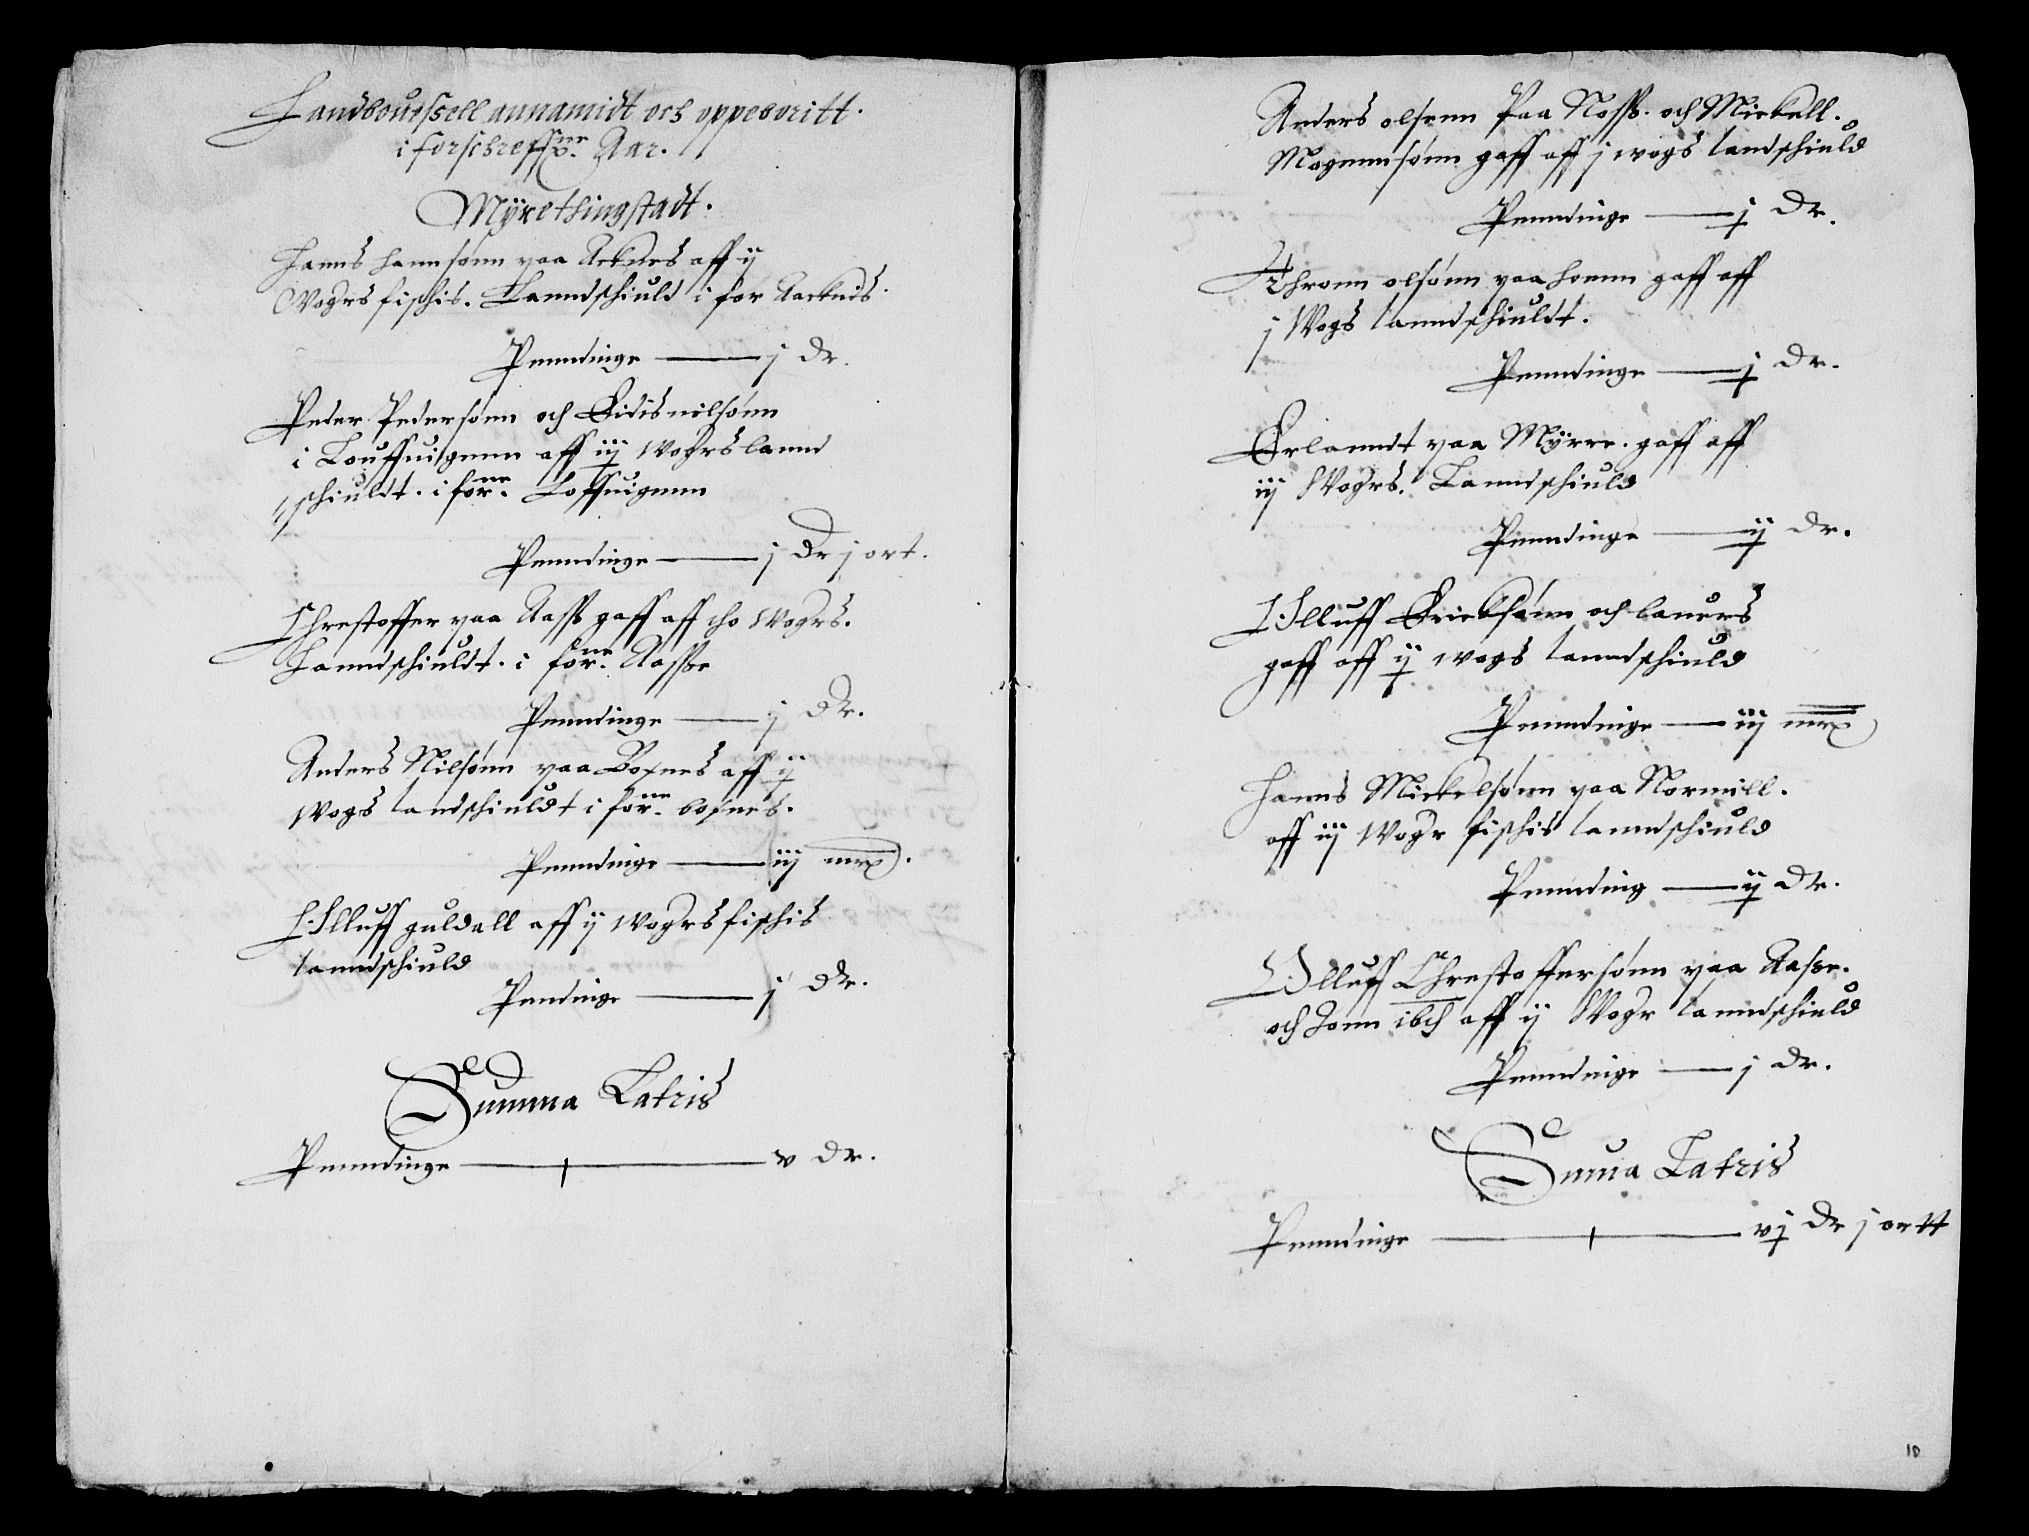 Landbouessell annamidt och oppeboritt.
i forschreffne. Aar.
Mÿrethingstadt.
Hanns hannsønn paa Acknes aff ij
Wogrs fischis. Lanndschiuld i for Aacknes.
Penndinge —— j Dr.
Peder Pedersønn och Eidis nilsønn
i Louffuignenn aff iij wogrs lannd
schiuldt. i forne. Loffuigenn
Penndinge —— j Dr j ort.
Chrestoffer paa Aass gaff aff tho Wogrs.
Lanndschiuldt. i forne. Aasse
Penndinge —— j Dr.
Anders Nilsønn paa Boxnes aff ij
Wogs landschiuldt i forne. boxnes.
Penndinge —— iij mrx.
Olluff guldall aff ij wogrs fischis
lanndschiuld
Pendinge —— j Dr.
Summa Latris
Penndinge —— v Dr.
Anders olsenn Paa Noss. och Mickell.
Mogennsønn gaff aff j wogs landschiuld
Penndinge —— j Dr.
Thronn olsønn paa honnn gaff aff
j Wogs lanndschiuldt.
Penndinge —— j Dr.
Erlanndt paa Mÿrre. gaff aff
iij Wogrs. Lanndschiuld
Penndinge —— ij Dr.
Olluff Ericksønn och laurrs
gaff aff ij wogs lanndschiuld
Penndinge —— iij mrx
Hanns Mickelsønn paa Normill.
aff iij Wogr fischis lanndschiuld
Penndinng —— ij Dr.
Olluff Chrestoffersønn paa Aasse.
och Jonn ibd aff ij Wogr lanndschiuld
Penndinge —— j Dr.
Suma Latris
Penndinge —— vj Dr j ortt
10